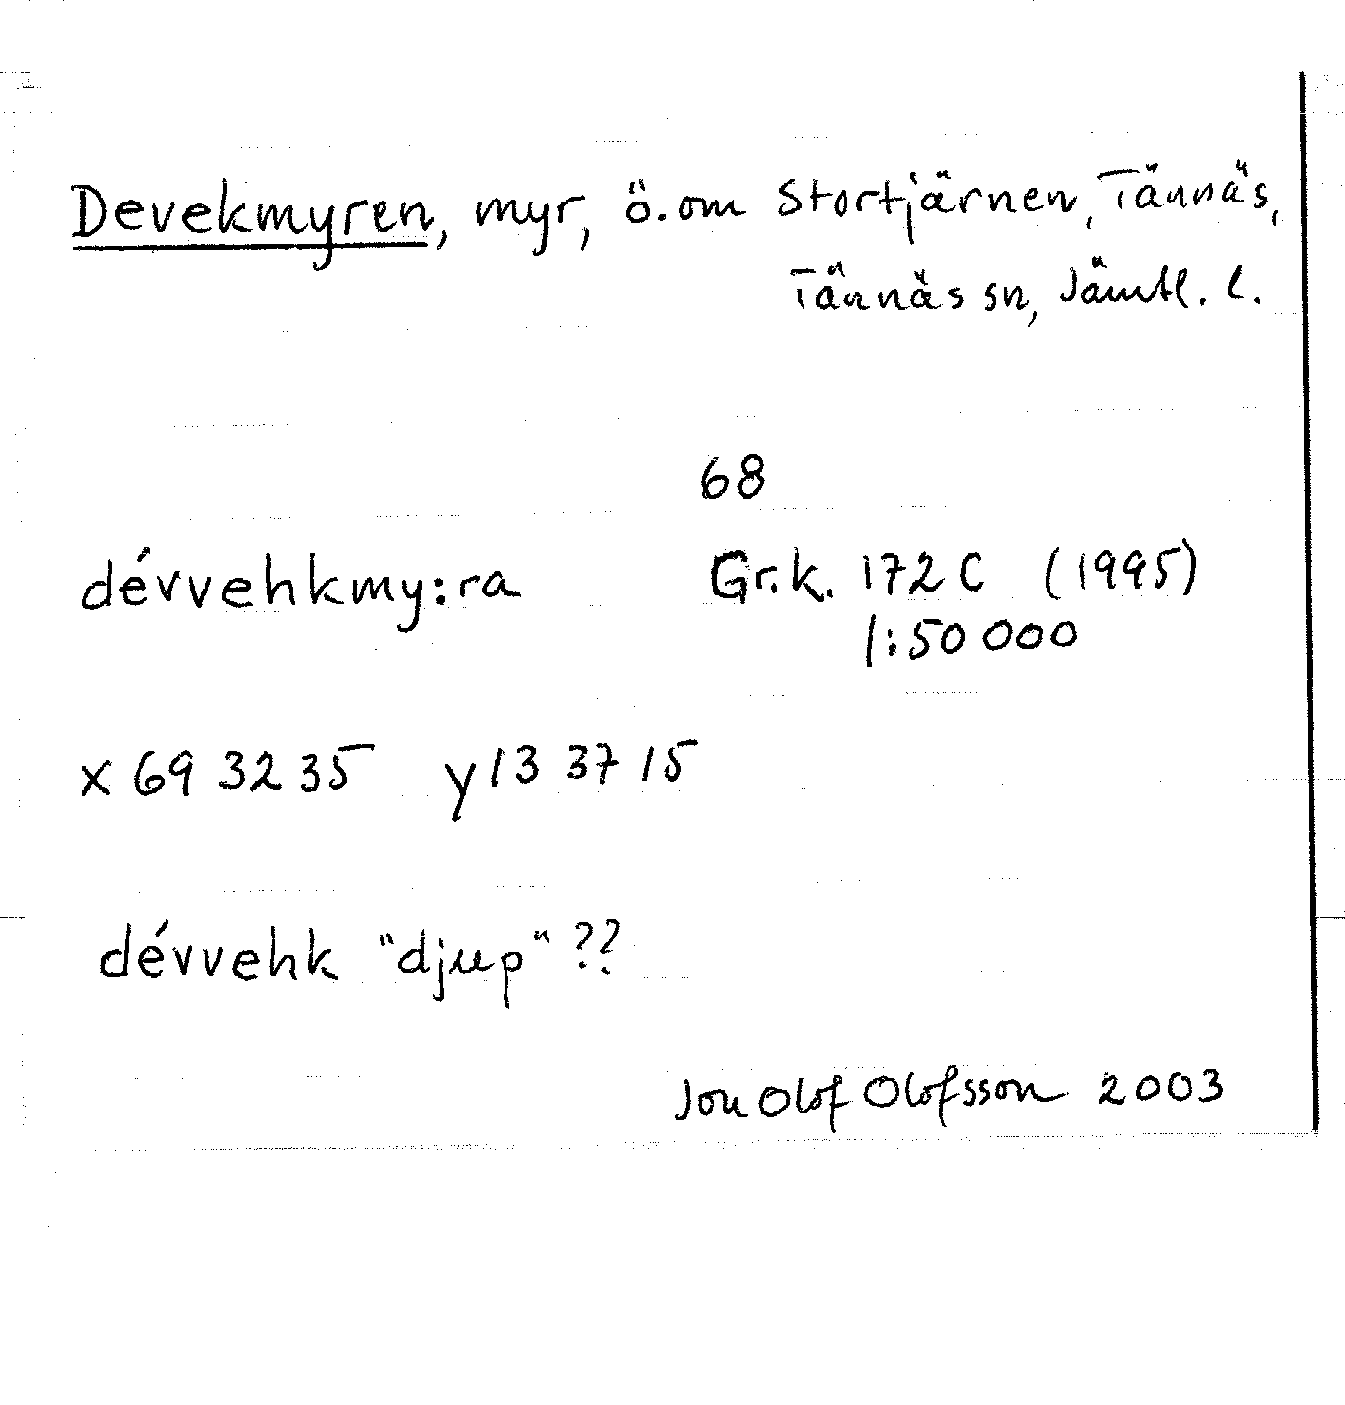 Devekmyren, myr, ö. om Stortjärnen, Tännäs,
Tännäs sn, Jämtl. l.
68
dévvehkmy:ra Gr.k. 172 C (1995)
1:50 000
x 69 32 35 y 13 37 15
dévvehk "djup" ??
Jon Olof Olofsson 2003